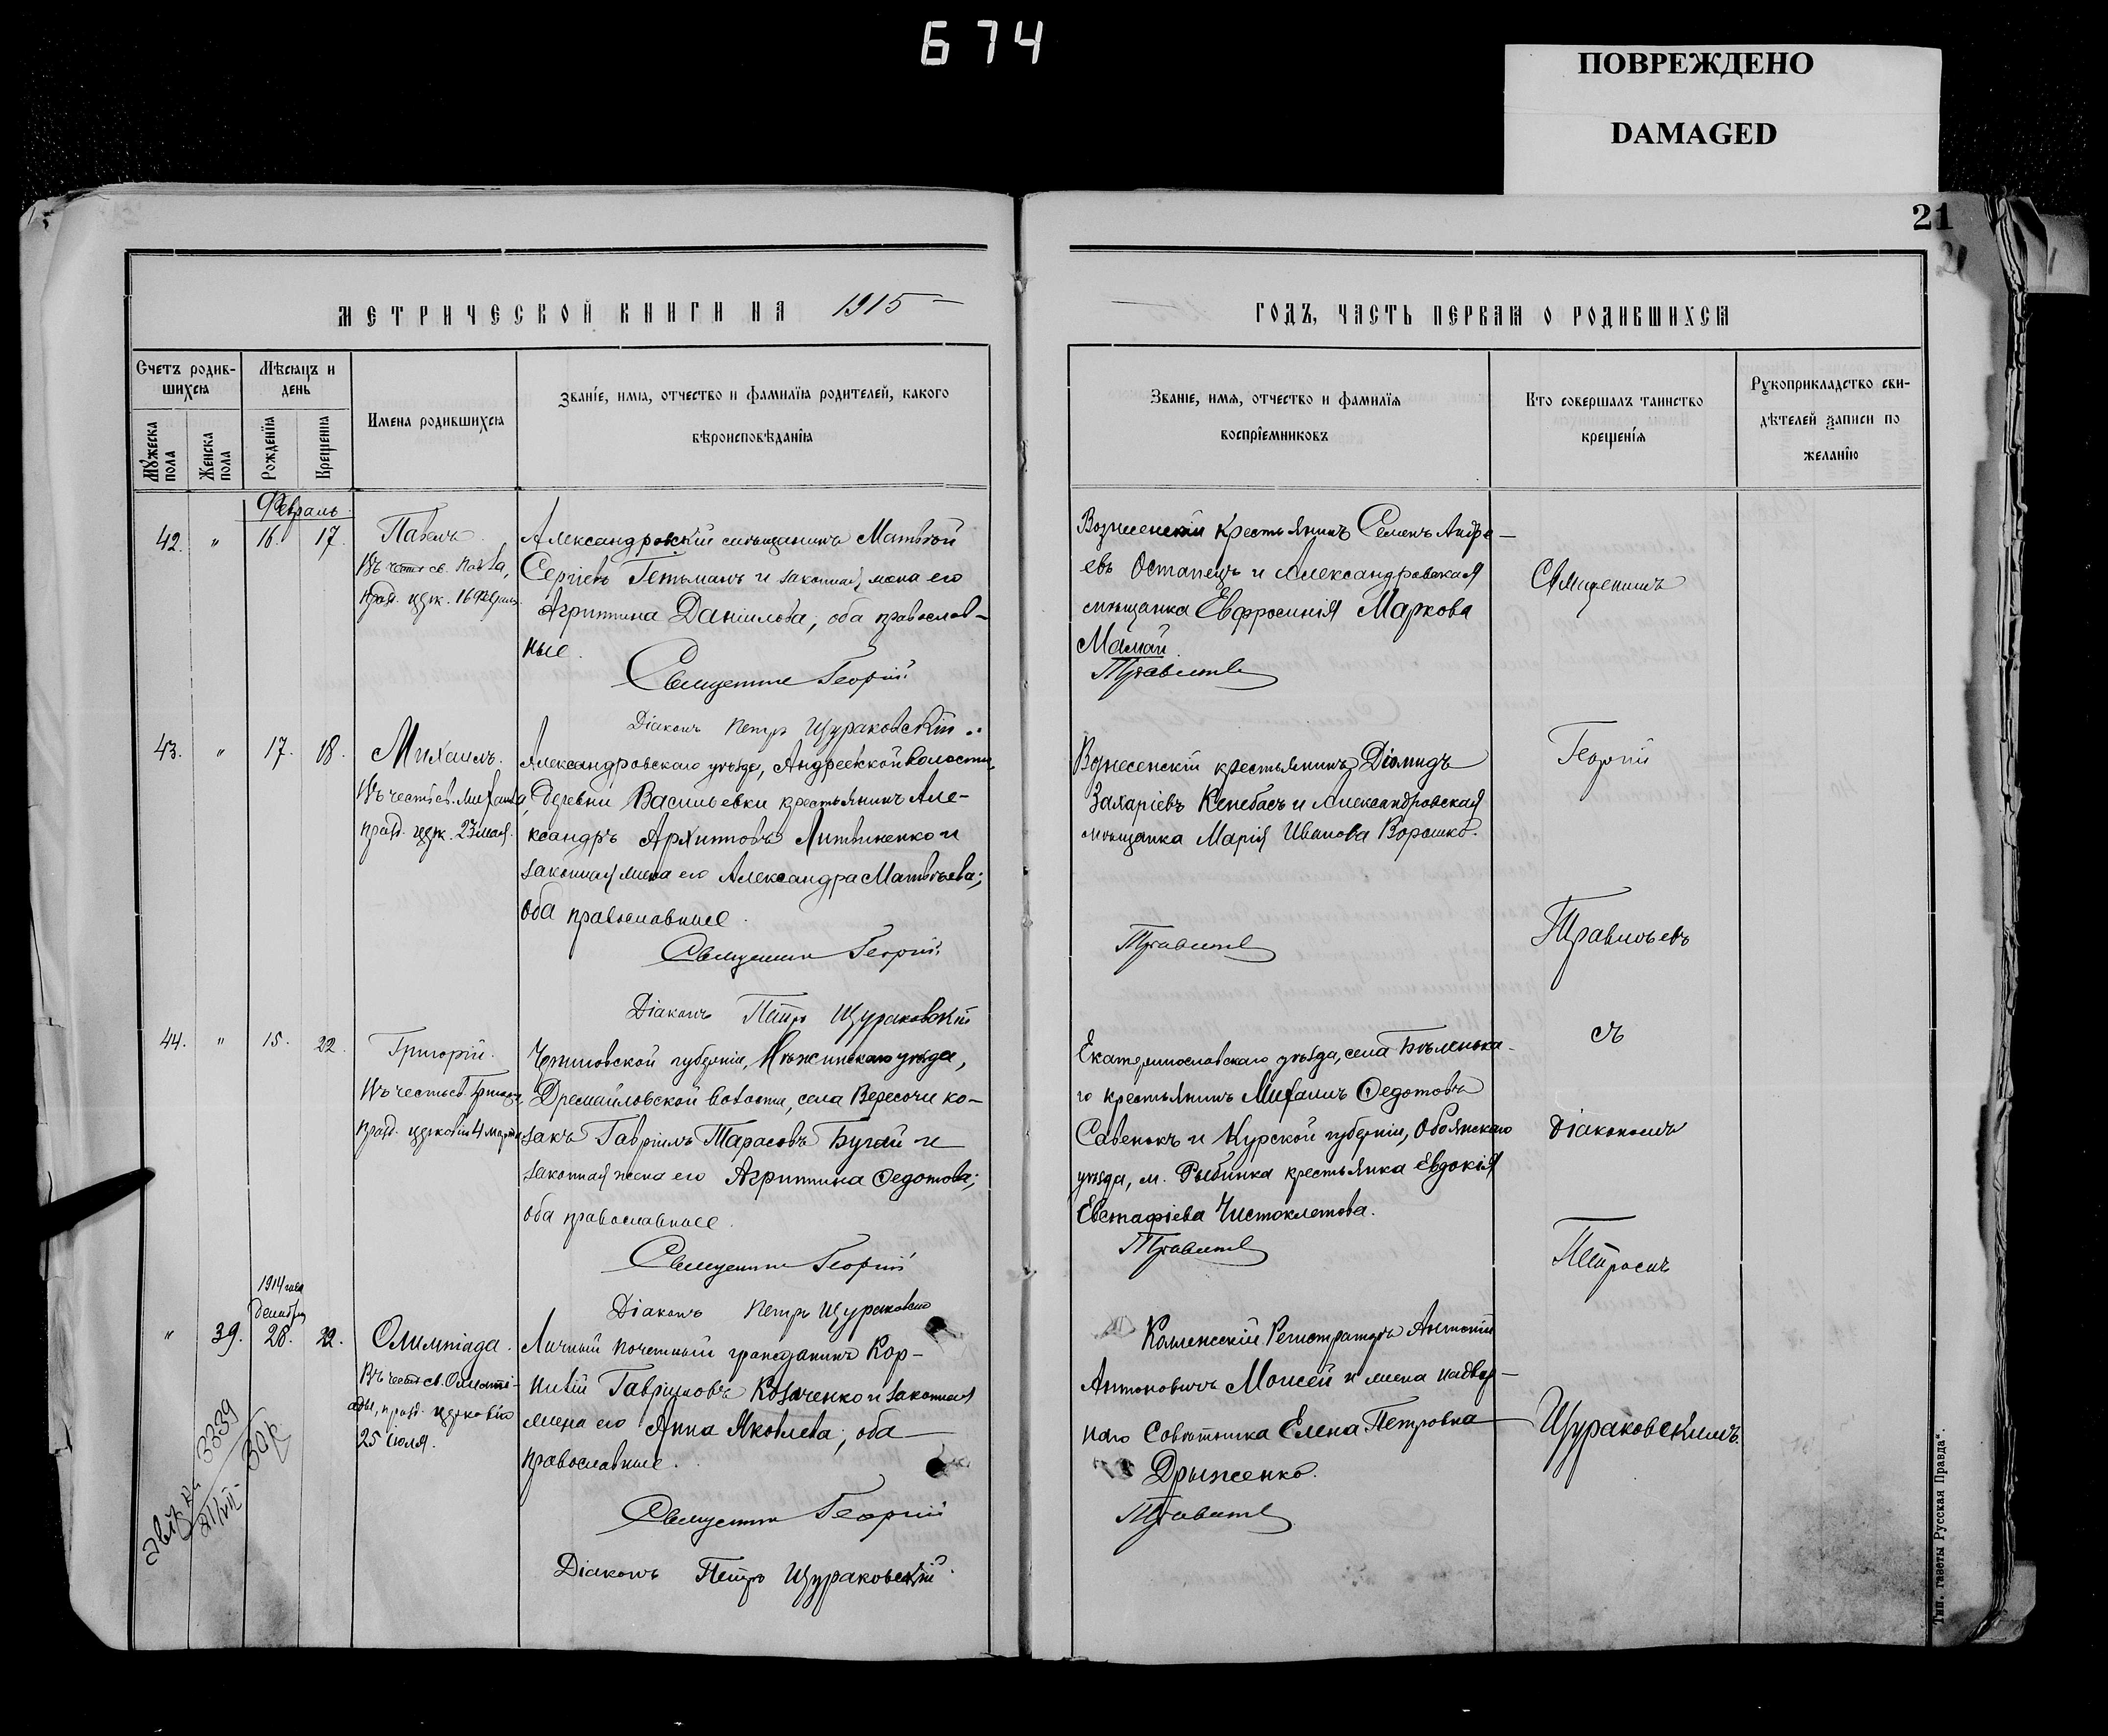 674
ПОВРЕЖДЕНО
DAMAGED
21
МЕТРИЧЕСКОЙ КНИГИ НА 1915
Счетъ родив-
шихся
Мѣсяцъ и
день
Мужеска
пола
Женска
пола
Рожденія
Крещенія
Имена родившихся
Званіе, имя, отчество и фамилія родителей, какого
вѣроисповѣданія
Февраль
42. " 16. 17.
Павелъ.
Въ честь св. Павла,
празд. церк. 16 Февраля.
Александровскій мѣщанинъ Матвѣй
Сергіевъ Гетьманъ и законная жена его
Агриппина Даніилова, оба православ-
ные.
Священникъ Георгій
Діаконъ Петръ Щураковскій.
43. " 17. 18.
Михаилъ.
Въ честь св. Михаила,
празд. церк. 23 мая.
Александровскаго уѣзда, Андреевской волости,
деревни Васильевки крестьянинъ Але-
ксандръ Архиповъ Литвиненко и
законная жена его Александра Матвѣева;
оба православные.
Священникъ Георгій
Діаконъ Петръ Щураковскій
44. " 15. 22.
Григорій.
Въ честь св. Григорія,
празд. церковію 4 марта.
Черниговской губерніи, Нѣжинскаго уѣзда,
Дремайловской волости, села Вересочи ко-
закъ Гавріилъ Тарасовъ Бугай и
законная жена его Агриппина Ѳедотова;
оба православные.
Священникъ Георгій
Діаконъ Петръ Щураковскій
1914 года
декабря
" 39. 28. 22.
Олимпіада.
Въ честь св. Олимпі-
ады, празд. церковію
25 іюля.
3339
Личный почетный гражданинъ Кор-
нилій Гавріиловъ Козаченко и законная
жена его Анна Яковлева; оба
православные.
Священникъ Георгій
Діаконъ Петръ Щураковскій.
ГОДЪ, ЧАСТЬ ПЕРВАЯ О РОДИВШИХСЯ
Званіе, имя, отчество и фамилія
воспріемниковъ
Кто совершалъ таинство
крещенія
Рукоприкладство сви-
дѣтелей записи по
желанію
Вознесенскій крестьянинъ Семенъ Андре-
евъ Остапецъ и Александровская
мѣщанка Евфросинія Маркова
Мамай.
Травлѣевъ
Вознесенскій крестьянинъ Діомидъ
Захаріевъ Кепебасъ и Александровская
мѣщанка Марія Иванова Ворошко.
Травлѣевъ
Екатеринославскаго уѣзда, села Бѣленька-
го крестьянинъ Михаилъ Ѳедотовъ
Савенокъ и Курской губерніи, Обоянскаго
уѣзда, м. Рыбинка крестьянка Евдокія
Евстафіева Чистоклетова.
Травлѣевъ
Коллежскій Регистраторъ Антоній
Антоновичъ Моисей и жена надвор-
наго Совѣтника Елена Петровна
Дрыженко.
Травлѣевъ
Священникъ
Георгій
Травлѣевъ
съ
Діакономъ
Петромъ
Щураковскимъ.
Тип. газеты „Русская Правда“.